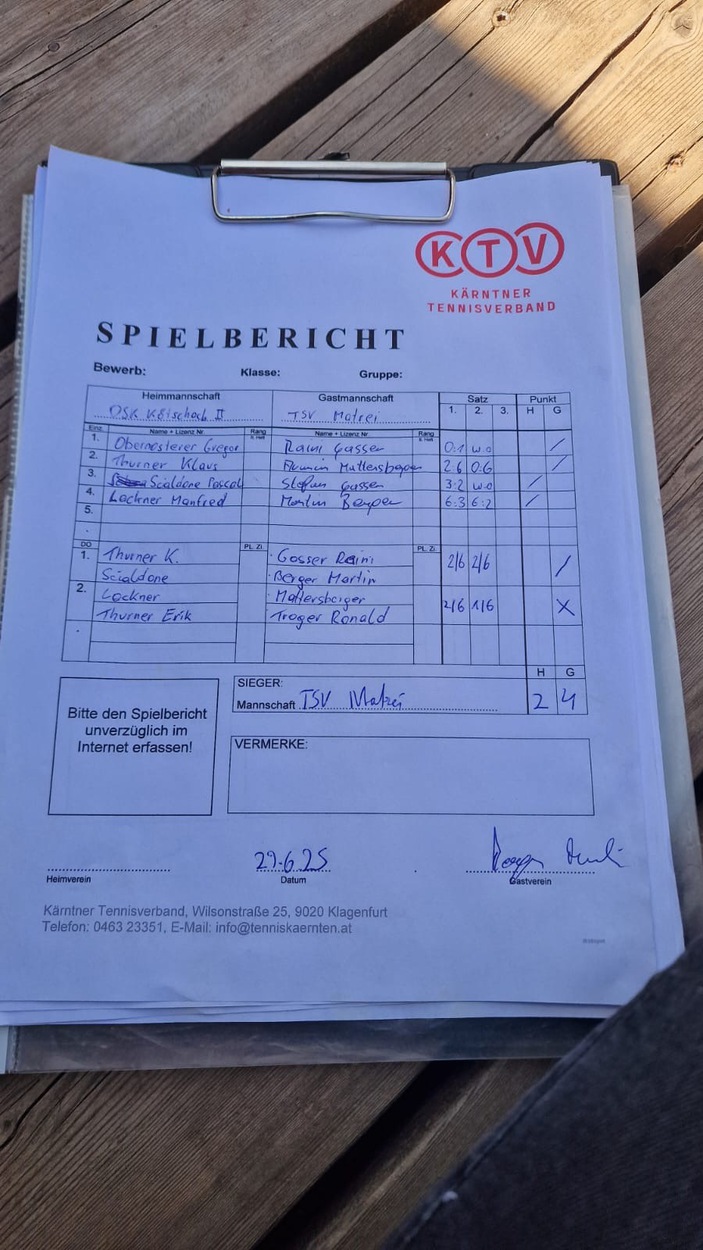 KTV
KÄRNTNER
TENNISVERBAND
SPIELBERICHT
Bewerb: Klasse: Gruppe:
Heimmannschaft Gastmannschaft Satz Punkt
1. 2. 3. H G
OSK Kötschach II TSV Matrei
Einz. Name + Lizenz Nr. Rang Name + Lizenz Nr. Rang
1. Obernosterer Gregor Raini Gasser 0:1 w.o /
2. Thurner Klaus Mattersberger 2:6 0:6 /
3. Scialdone Pascal Stefan Gasser 3:2 w.o /
4. Lackner Manfred Martin Berger 6:3 6:2 /
5.
DO PL. Zi. PL. Zi.
1. Thurner K. Gasser Raini 2/6 2/6 /
Scialdone Berger Martin
2. Lackner Mattersberger 2/6 1/6 X
Thurner Erik Troger Ronald
H G
SIEGER:
Mannschaft TSV Matrei 2 4
Bitte den Spielbericht
unverzüglich im
Internet erfassen!
VERMERKE:
29.6.25
Heimverein Datum Gastverein
Kärntner Tennisverband, Wilsonstraße 25, 9020 Klagenfurt
Telefon: 0463 23351, E-Mail: info@tenniskaernten.at